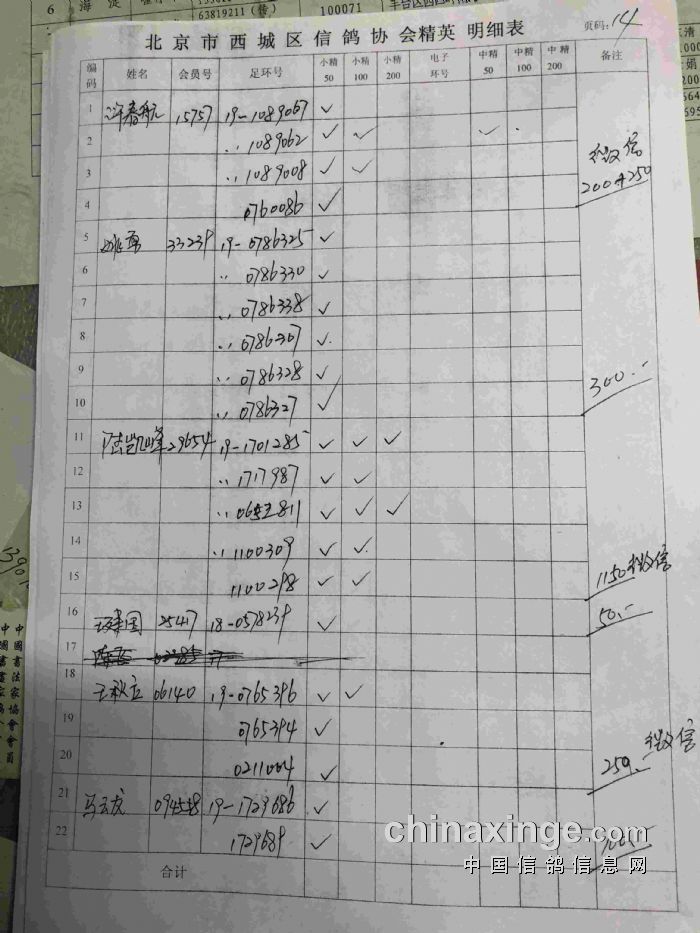 6 海 淀
63819211(传) 100071
北京市西城区信鸽协会精英 明细表 页码: 14
编码 姓名 会员号 足环号 小精50 小精100 小精200 电子环号 中精50 中精100 中精200 备注
1 许春航 15757 19-1089067 ✓
2 〃 1089062 ✓ ✓ ✓
3 〃 1089008 ✓ ✓ 微信
4 0760086 ✓ 200+250
5 33239 19-0786325 ✓
6 〃 0786330 ✓
7 〃 0786338 ✓
8 〃 0786307 ✓
9 〃 0786328 ✓
10 〃 0786327 ✓ 300.-
11 陆凯峰 29654 19-1701285 ✓ ✓ ✓
12 〃 1717987 ✓ ✓
13 〃 ✓ ✓ ✓
14 〃 1100309 ✓ ✓
15 1100298 ✓ ✓ 1150 微信
16 王建国 25417 18-0578239 ✓ 50.-
17
18 王秋应 06140 19-0765396 ✓ ✓
19 0765394 ✓
20 0211004 ✓ 250. 微信
21 马云龙 19-1729686 ✓
22 1729689 ✓ 100.-
合计
chinaxinge.com
中国信鸽信息网